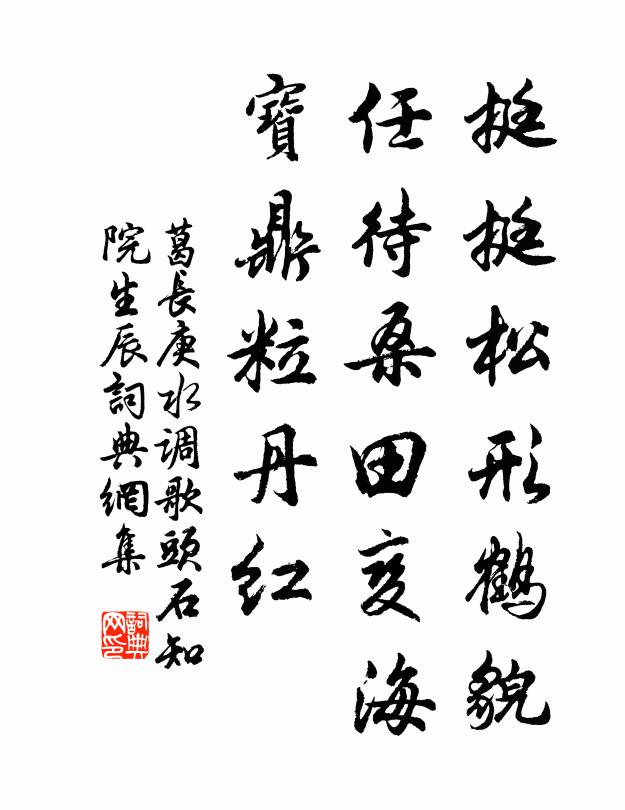 挺挺松形鶴貌
任待桑田变海
寶鼎粒丹紅
葛長庚水调歌頭石知
院生辰詞典網集
詞典
网印